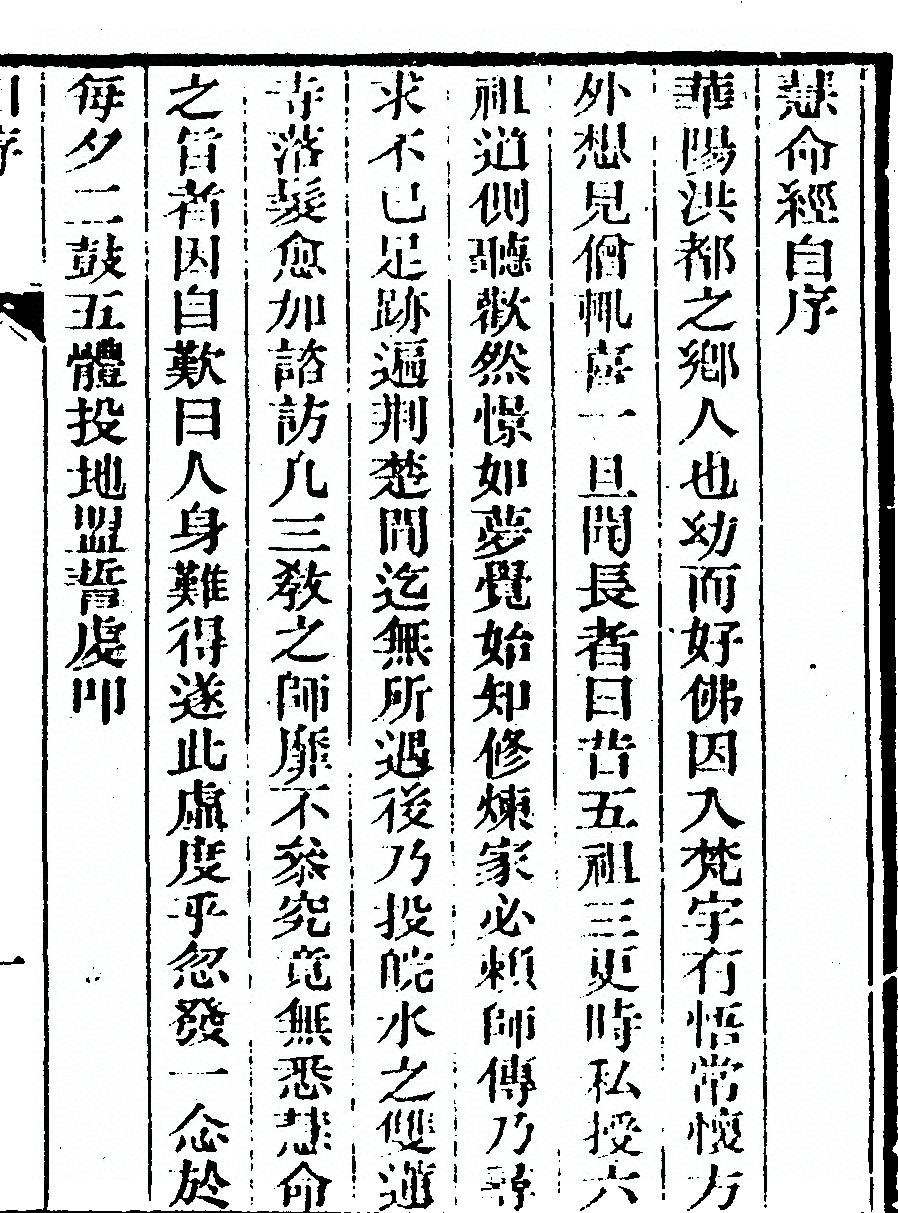 慧命經自序
華陽洪都之鄉人也幼而好佛因入梵宇有悟常懷方
外想見僧輒喜一旦聞長者曰昔五祖三更時私授六
祖道側聽歡然憬如夢覺始知修煉家必賴師傳乃尋
求不已足跡遍荆楚間迄無所遇後乃投皖水之雙蓮
寺落髮愈加諮訪凡三教之師靡不參究竟無悉慧命
之旨者因自歎曰人身難得遂此虛度乎忽發一念於
每夕二鼓五體投地盟誓虔叩
自序
一